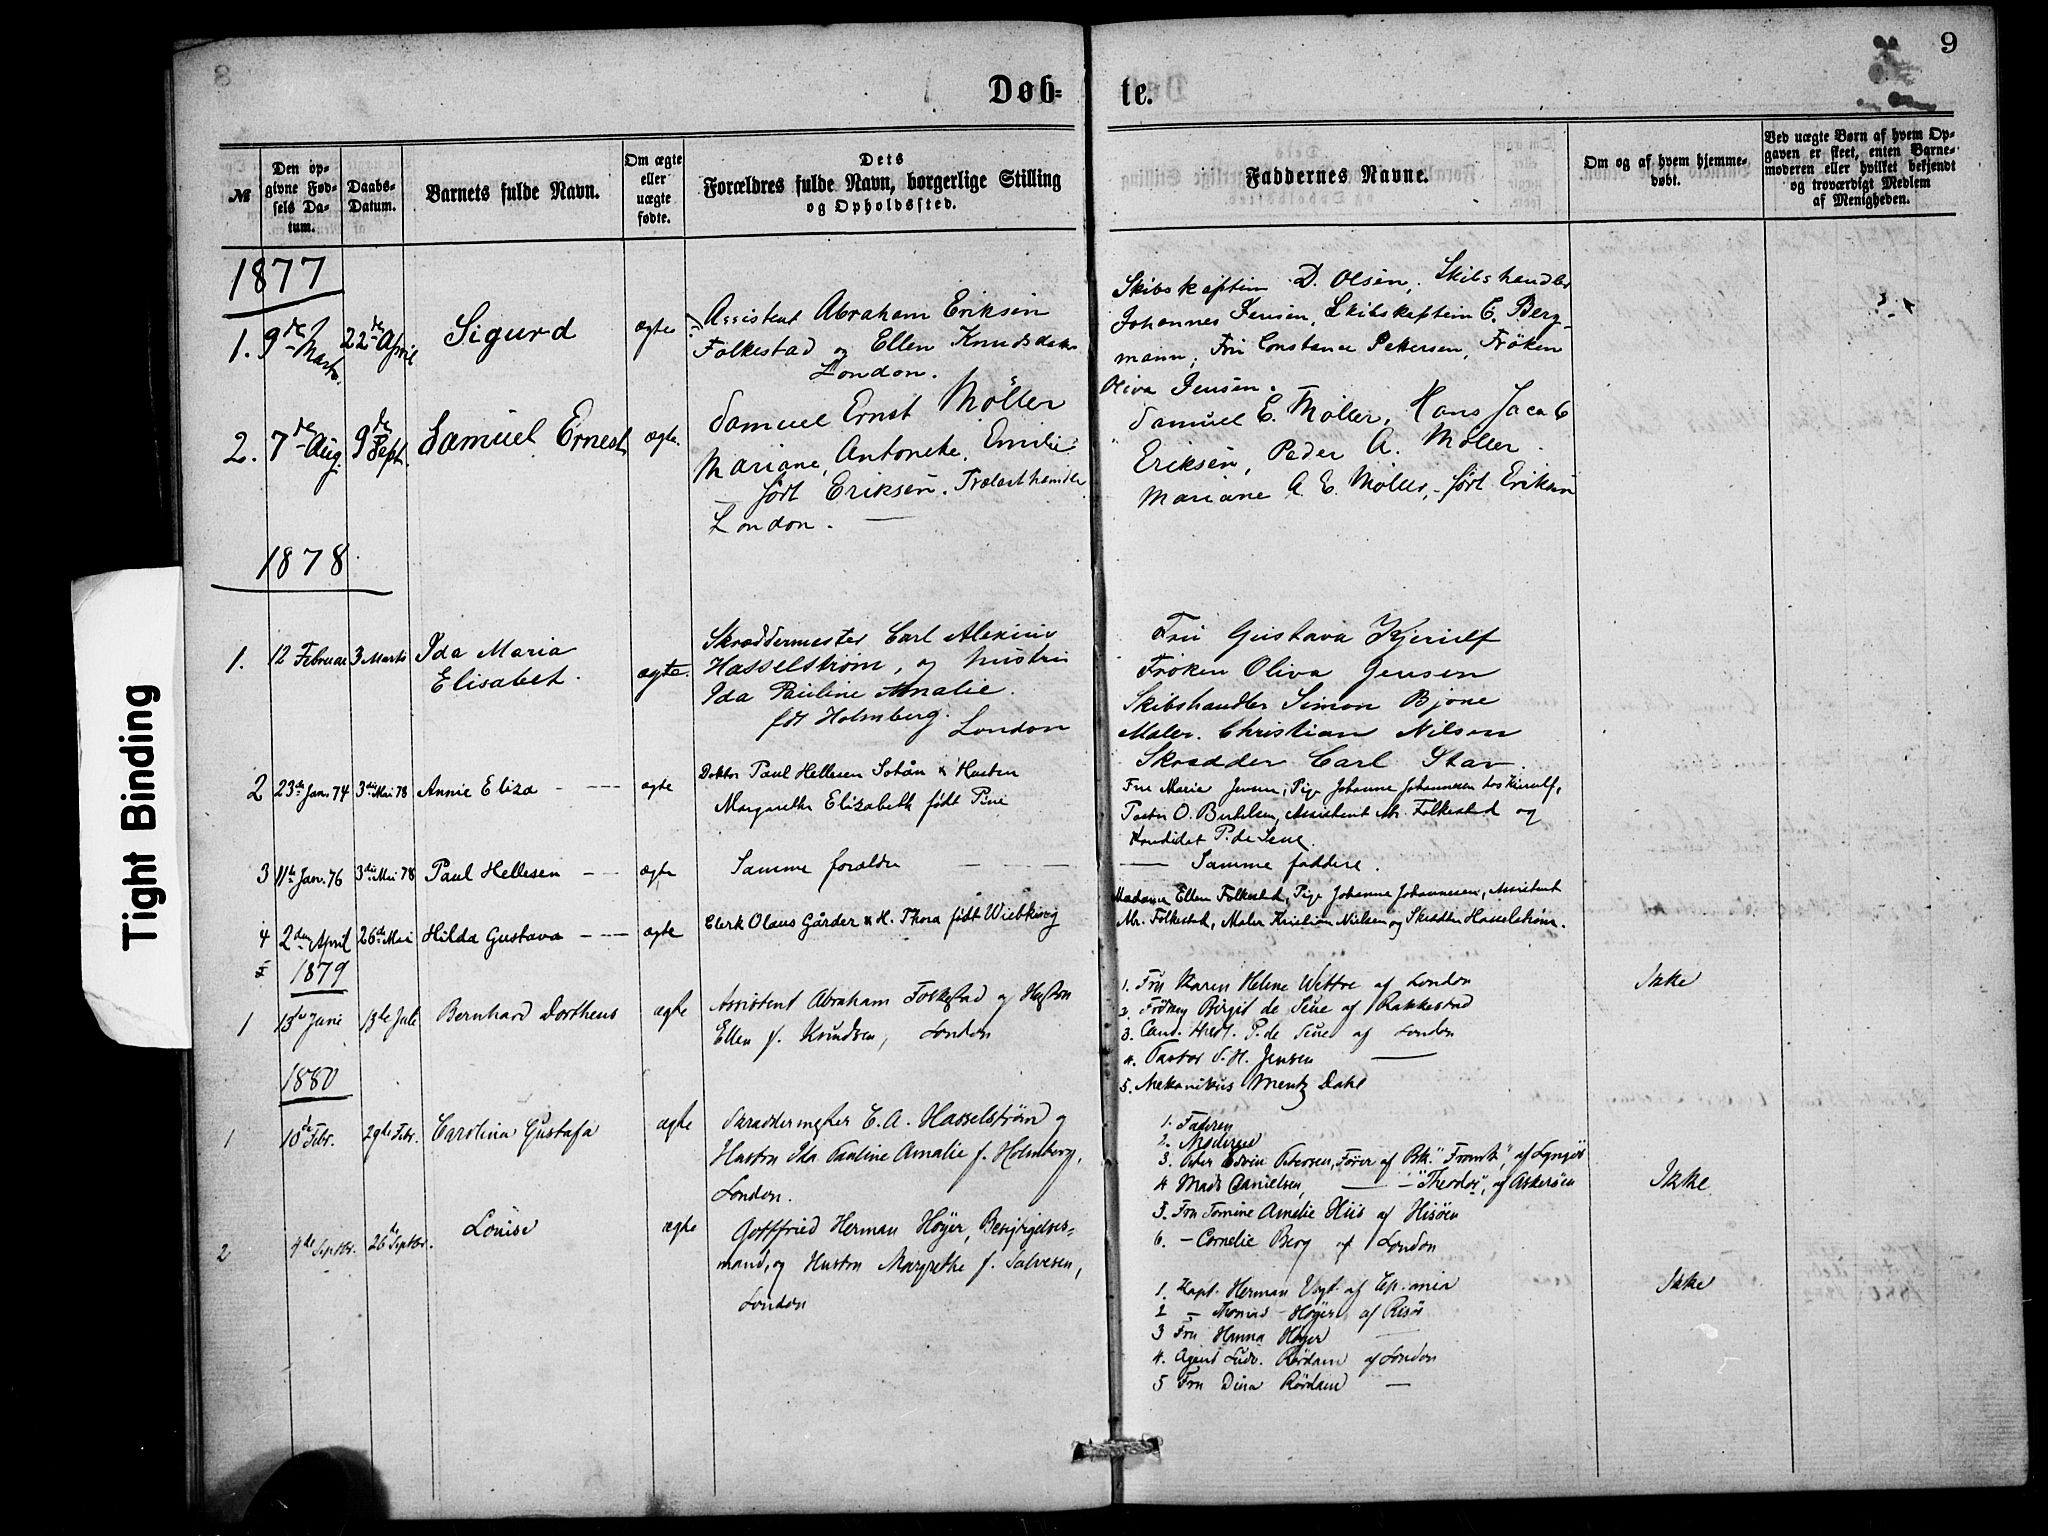 8
9
Døb-
te.
№
Den opgivne Fødsels Datum.
Daabs-Datum.
Barnets fulde Navn.
Om ægte eller uægte fødte.
Dets Forældres fulde Navn, borgerlige Stilling og Opholdssted.
Faddernes Navne.
Om og af hvem hjemmedøbt.
Ved uægte Børn af hvem Opgaven er skeet, enten Barnemoderen eller hvilket bekjendt og troværdigt Medlem af Menigheden.
Tight Binding
1877
1. 9de Marts. 22de April Sigurd ægte
Assistent Abraham Eriksen
Folkestad og Ellen Knudsdatter
London.
Skibskaptein D. Olsen, Skibshandler
Johannes Jensen, Skibskaptein C. Berg-
mann, Fru Constance Pettersen, Frøken
Oliva Jensen.
2. 7de Aug. 9de Sept. Samuel Ernest ægte.
Samuel Ernst Möller
Mariane, Antonette, Emilie
født Eriksen. Trælasthandler
London.
Samuel E. Möller, Hans Jacob
Eriksen, Peder A. Möller.
Mariane A. E. Möller, født Eriksen
1878
1. 12 Februar 3 Marts Ida Maria
Elisabet. ægte.
Skræddermester Carl Alexius
Hasselström, og hustru
Ida Pauline Amalie.
født Holmberg.
London
Fru Gustava Kjerulf
Frøken Oliva Jensen
Skibshandler Simon Bjone
Maler. Christian Nilsen
Skrædder Carl Stav.
2 23de Jan. 74 3die Mai 78 Annie Eliza ægte
Doktor Paul Hellesen Sohån & Hustru
Margarethe Elizabeth født Pine
Fru Marie Jensen, Pige Johanne Johannesen hos Kierulf,
Pastor O. Bertelsen, Assistent Ab. Folkestad og
Kandidat P. de Seue.
3 11te Jan. 76 3die Mai 78 Paul Hellesen ægte Samme forældre
Samme faddere.
4 2den April 26de Mai Hilda Gustava ægte Clerk Olaus Gårder & H. Thora født Wiebking
Madame Ellen Folkestad, Pige Johanne Johannesen, Assistent
Ab. Folkestad, Maler Kristian Nielsen og Skrædder Hasselstrøm.
1879
1 13de Juni 13de Juli Bernhard Dortheus ægte
Assistent Abraham Folkestad og Hustru
Ellen f. Knudsen, London
1. Fru Karen Helene Wettre af London
2. Frøken Birgit de Seue af Rakkestad
3. Cand. theol. P. de Seue af London
4. Pastor S. H. Jensen —
5. Mekanikus Mentz Dahl
Ikke
1880
1 10de Febr. 29de Febr. Carolina Gustafa ægte
Skræddermester C. A. Hasselstrøm og
Hustru Ida Pauline Amalie f. Holmberg,
London.
1. Faderen
2. Moderen
3. Peter Edvin Petersen, Fører af Bk. "Framat", af Lyngör
4 Mads Danielsen, — "Theodor", af Askerøen
5. Fru Tomine Amelie Hiis af Hisöen
6. — Cornelie Berg af London
Ikke
2 4de Septbr. 26de Septbr. Louise ægte
Gottfried Herman Høyer, Besigtigelses-
mand, og Hustru Margrethe f. Salvesen,
London
1. Kapt. Herman Vogt af
2 — Thomas Høyer af Risör
3 Fru Hanna Høyer —
4. Agent Ludv. Rördam af London
5 Fru Dina Rördam —
Ikke